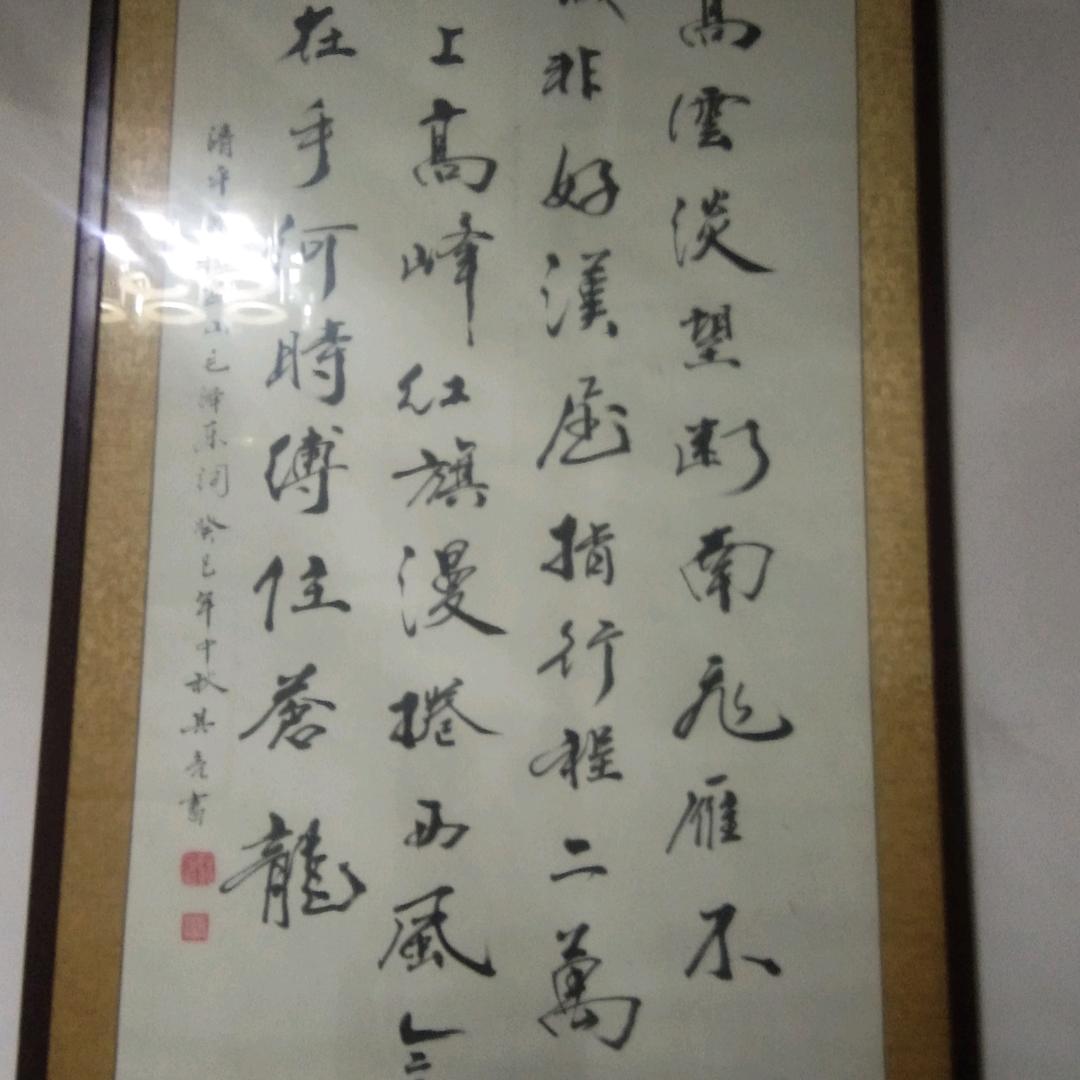 高雲淡望斷南飛雁不
非好漢屈指行程二萬
上高峰紅旗漫捲西風今
在手何時縛住蒼龍
清平山毛澤東詞癸巳年中秋其亮書